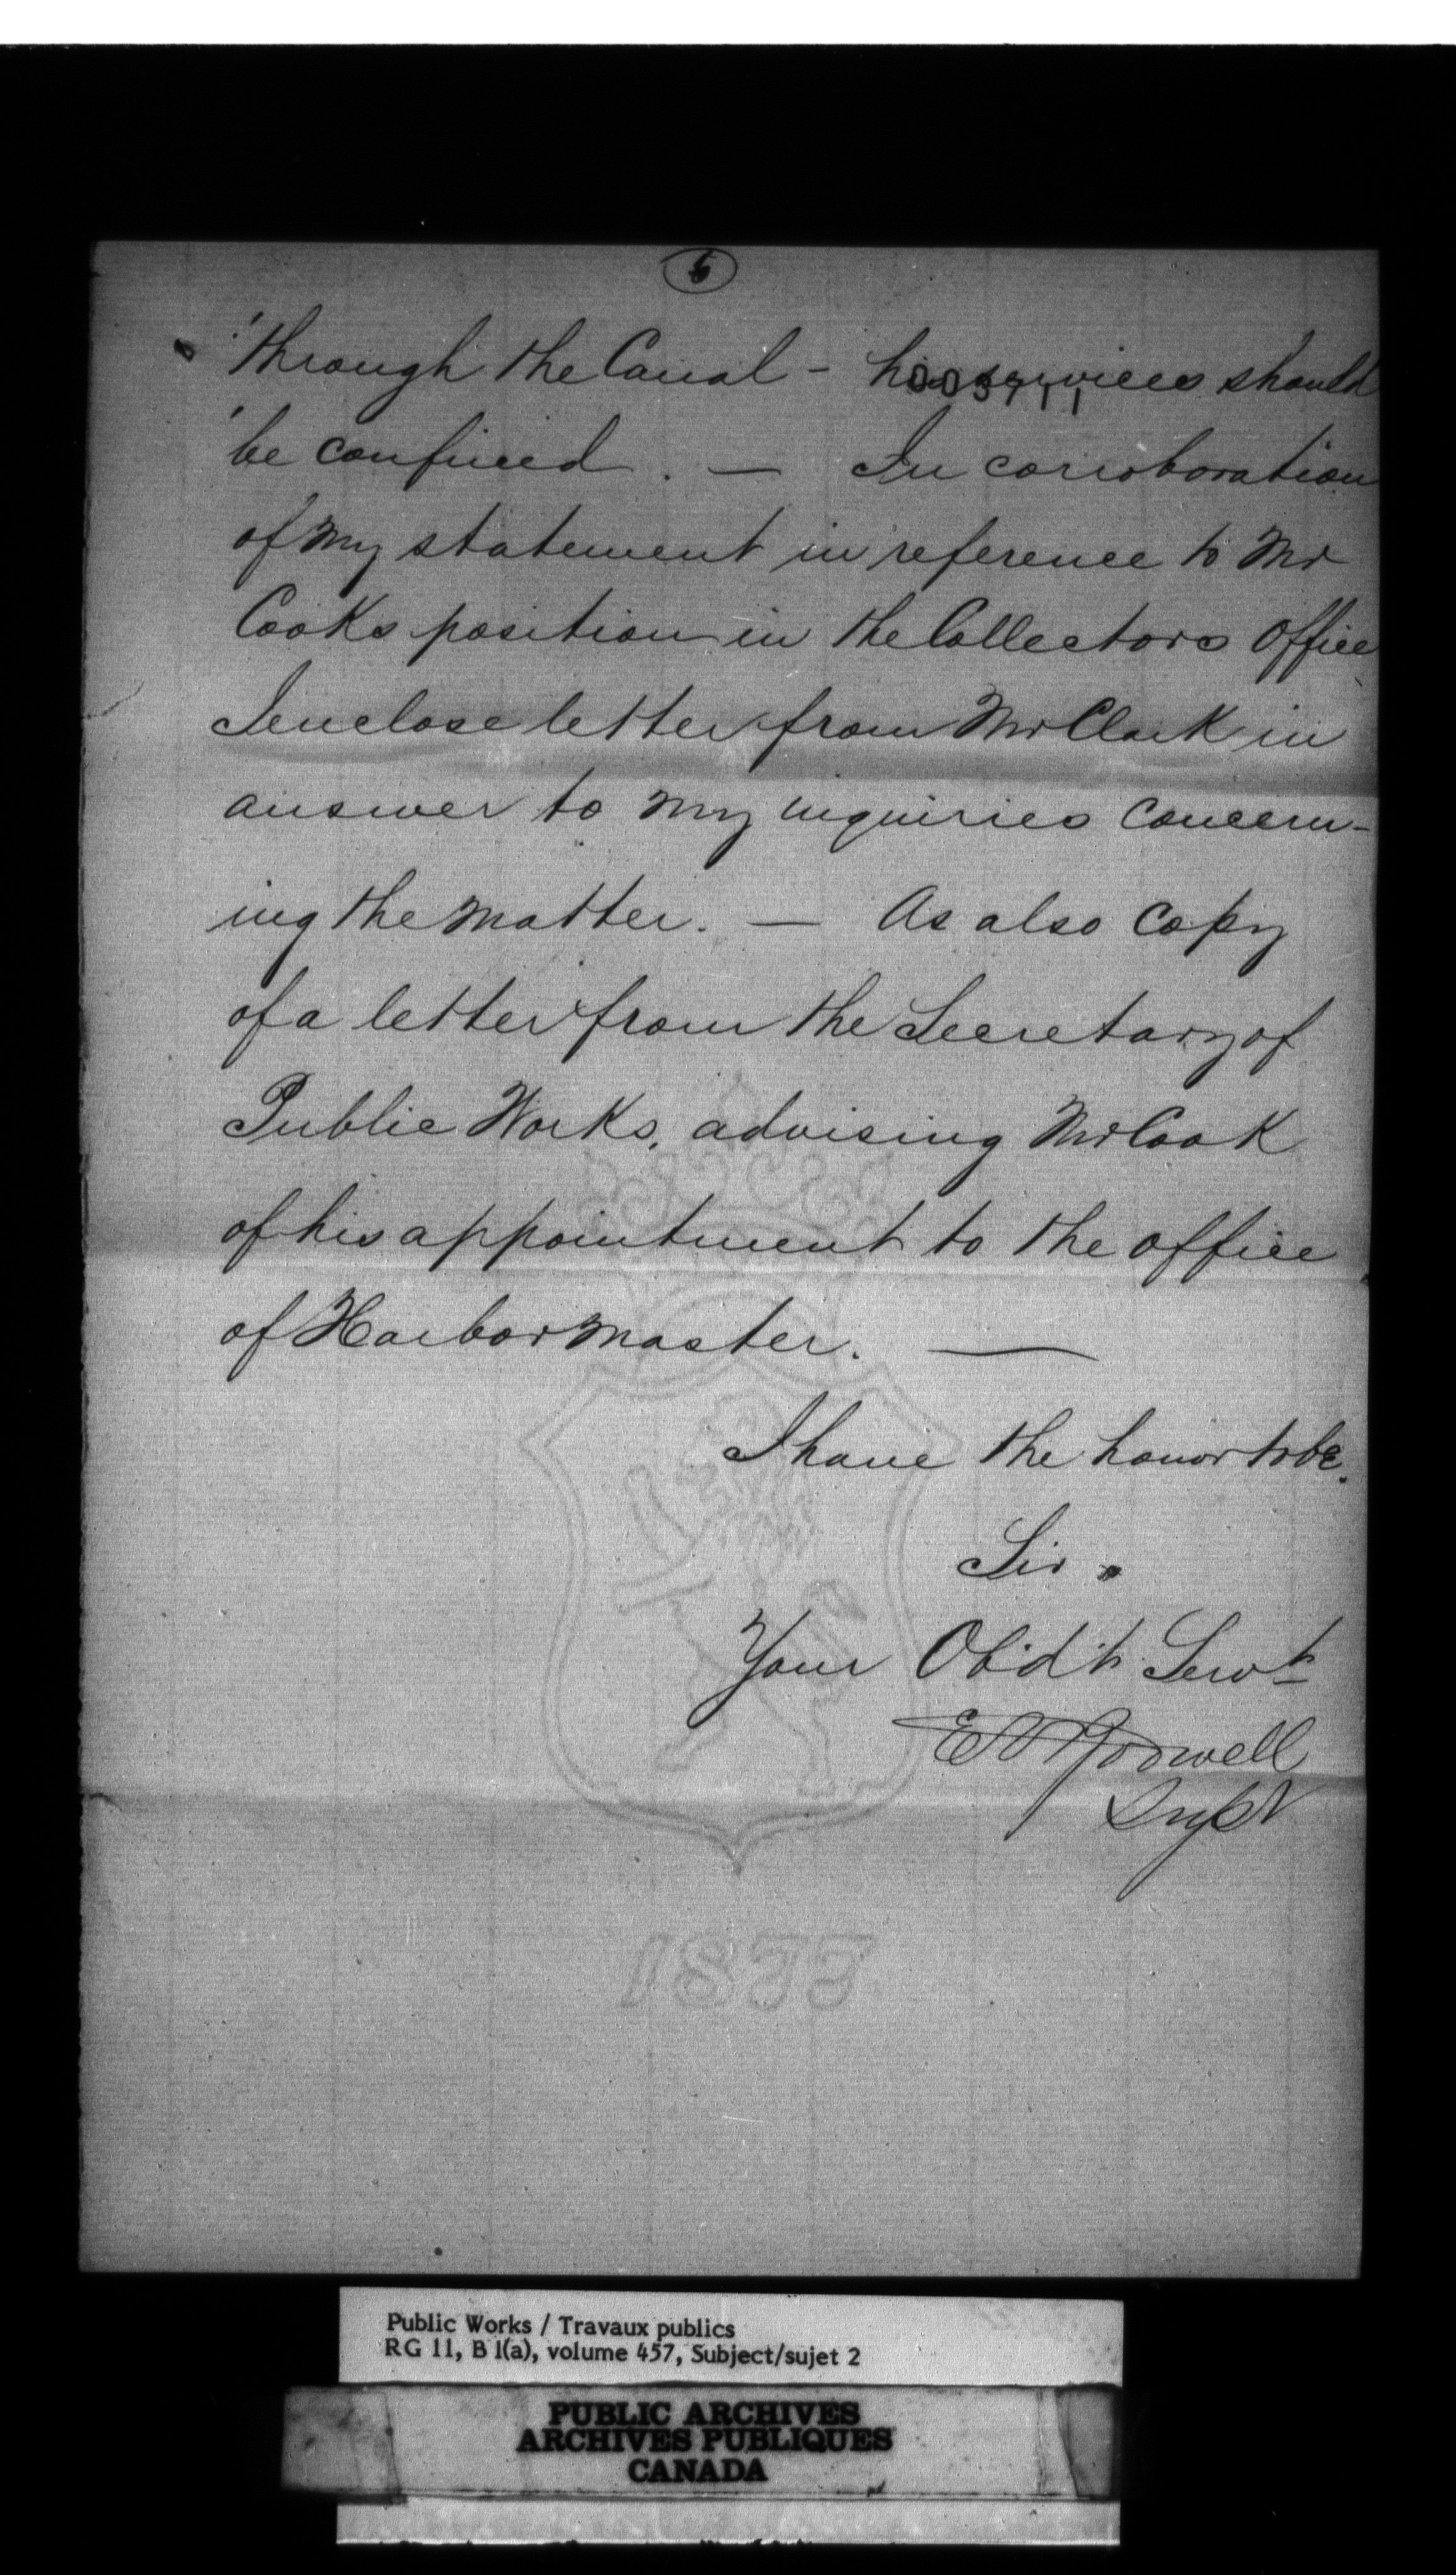 5
"through the Canal – his services should
"be confined. — In corroboration
of my statement in reference to Mr
Cooks position in the Collectors Office
I enclose letter from Mr Clark in
answer to my inquiries concern-
ing the matter. — As also Copy
of a letter from the Secretary of
Public Works, advising Mr Cook
of his appointment to the office
of Harbor Master. —
I have the honor to be.
Sir.
Your Obd't Servt
Supt
1877
Public Works / Travaux publics
RG 11, B 1(a), volume 457, Subject/sujet 2
PUBLIC ARCHIVES
ARCHIVES PUBLIQUES
CANADA